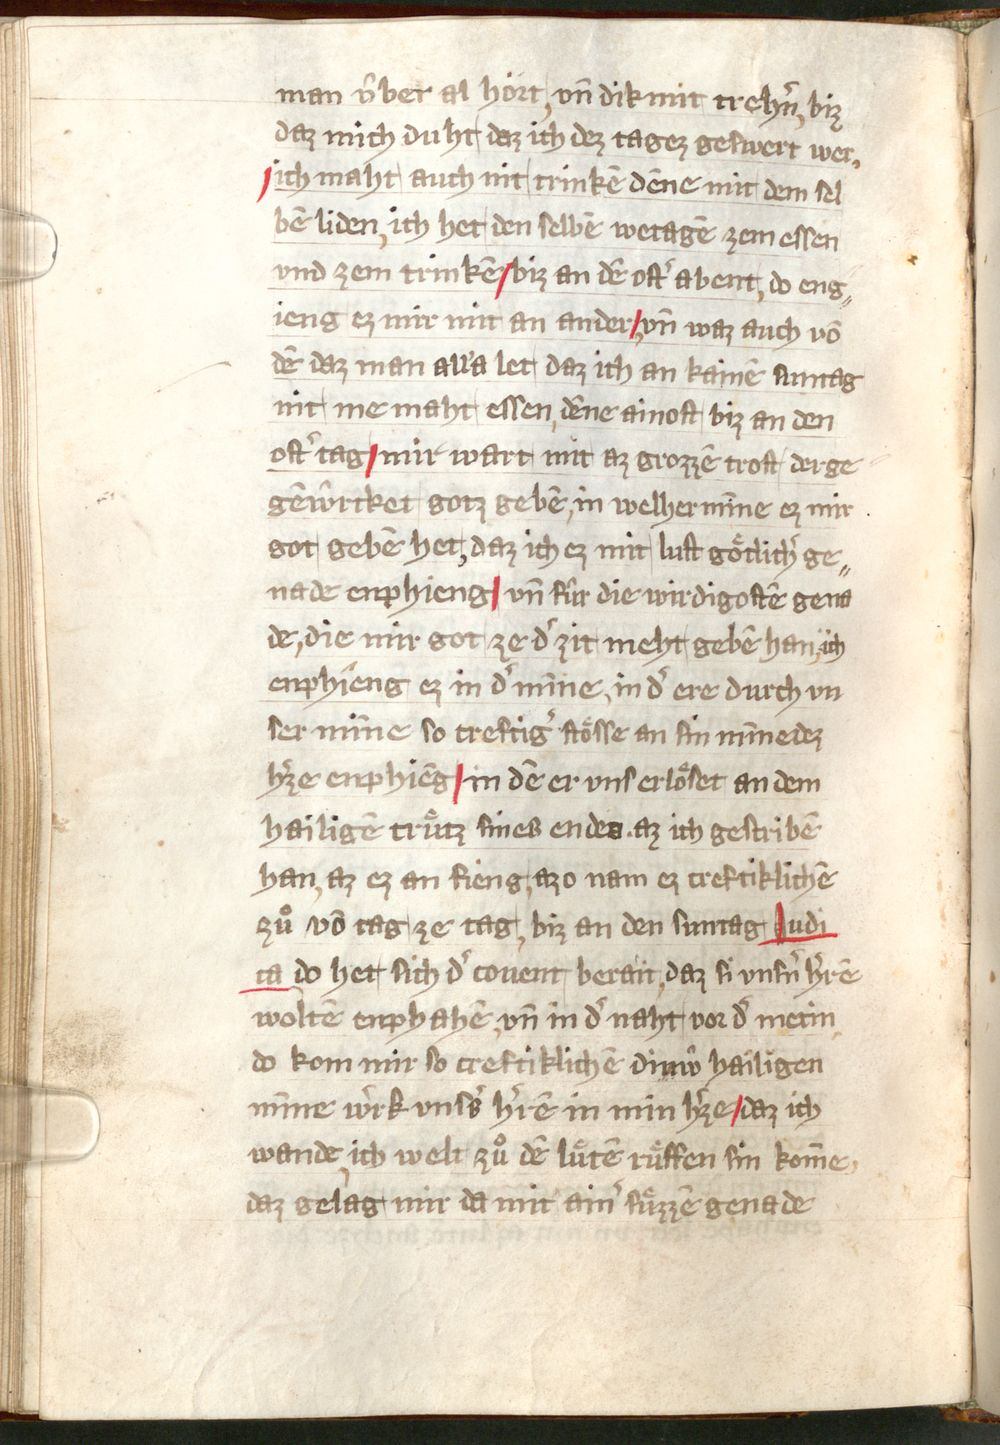 man v̂ber al hört, vn̄ dik mit trehn̄, biz
daz mich duht daz ich dez tagez geswert wer,
ich maht auch nit trinkē dēne mit dem sel
bē liden, ich het den selbē wetagē zem essen
vnd zem trinkē, biz an dē ost' abent, do eng„
ieng ez mir mit an ander, vn̄ waz auch vō
dē daz man all'a let daz ich an kainē suntag
nit me maht essen, dēne ainost biz an den
ost' tag, mir wart mit az grozzē trost der ge
gēŵrtket gotz gebē, in welher mīne ez mir
got gebē het, daz ich ez mit lust götlich' ge„
nade enphieng, vn̄ fûr die wirdigostē gena
de, die mir got ze d' zit meht gebē han, ich
enphieng ez in d' mīne, in d' ere durch vn
ser mīne so creftig' stösse an sin mīnedez
h'ze enphiēg, in dē er vns erlöset an dem
hailigē crütz sines endes. az ich gescribē
han, az ez an fieng, azo nam ez creftiklichē
zů vō tag ze tag, biz an den suntag Judi
ca do het sich d' couent berait, daz si vnsn' h'rē
woltē enphahē, vn̄ in d' naht vor d' metin
do kom mir so creftiklichē diuŵ hailigen
mīne ŵrk vns's h'rē in min h'ze, daz ich
wande, ich welt zů dē lütē rüffen sin kom̄e,
daz gelag mir da mit ain' süzzē genade